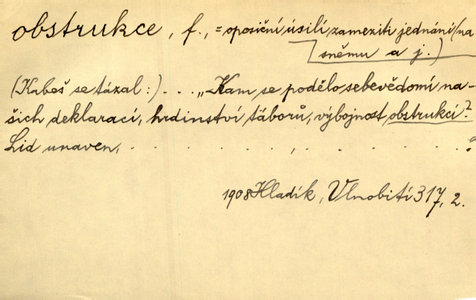 obstrukce, f., = oposiční úsilí, zameziti jednání (na
sněmu a j.)
(Kabeš se tázal:) . . . „Kam se podělo sebevědomí na-
šich deklarací, hrdinství táborů, výbojnost obstrukcí?
Lid unaven, . . . . . . "
1908 Hladík, Vlnobití 317, 2.